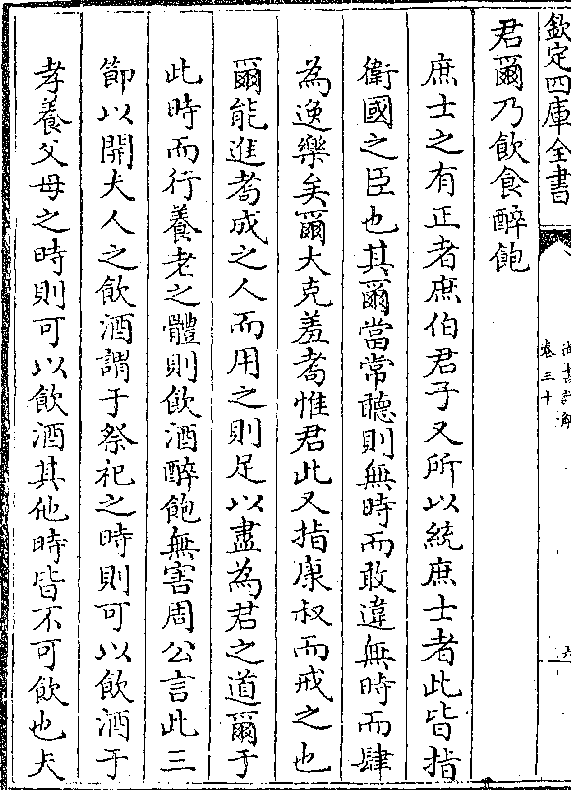 欽定四庫全書
卷三十
君爾乃飲食醉飽
庶士之有正者庶伯君子又所以統庶士者此皆指
衛國之臣也其爾當常聽則無時而敢違無時而肆
為逸樂矣爾大克羞耇惟君此又指康叔而戒之也
爾能進耇成之人而用之則足以盡為君之道爾于
此時而行養老之體則飲酒醉飽無害周公言此三
節以開夫人之飲酒謂于祭祀之時則可以飲酒于
孝養父母之時則可以飲酒其他時皆不可飲也夫